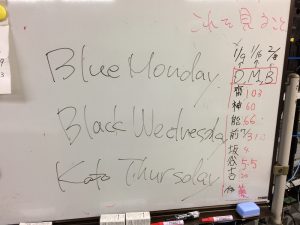 これを見ること
Blue Monday
Black Wednesday
Kato Thursday
1/9 1/6 2/8
D, M, B
齋 103
神 60
能 66
前
坂 4
渋 55
古 20